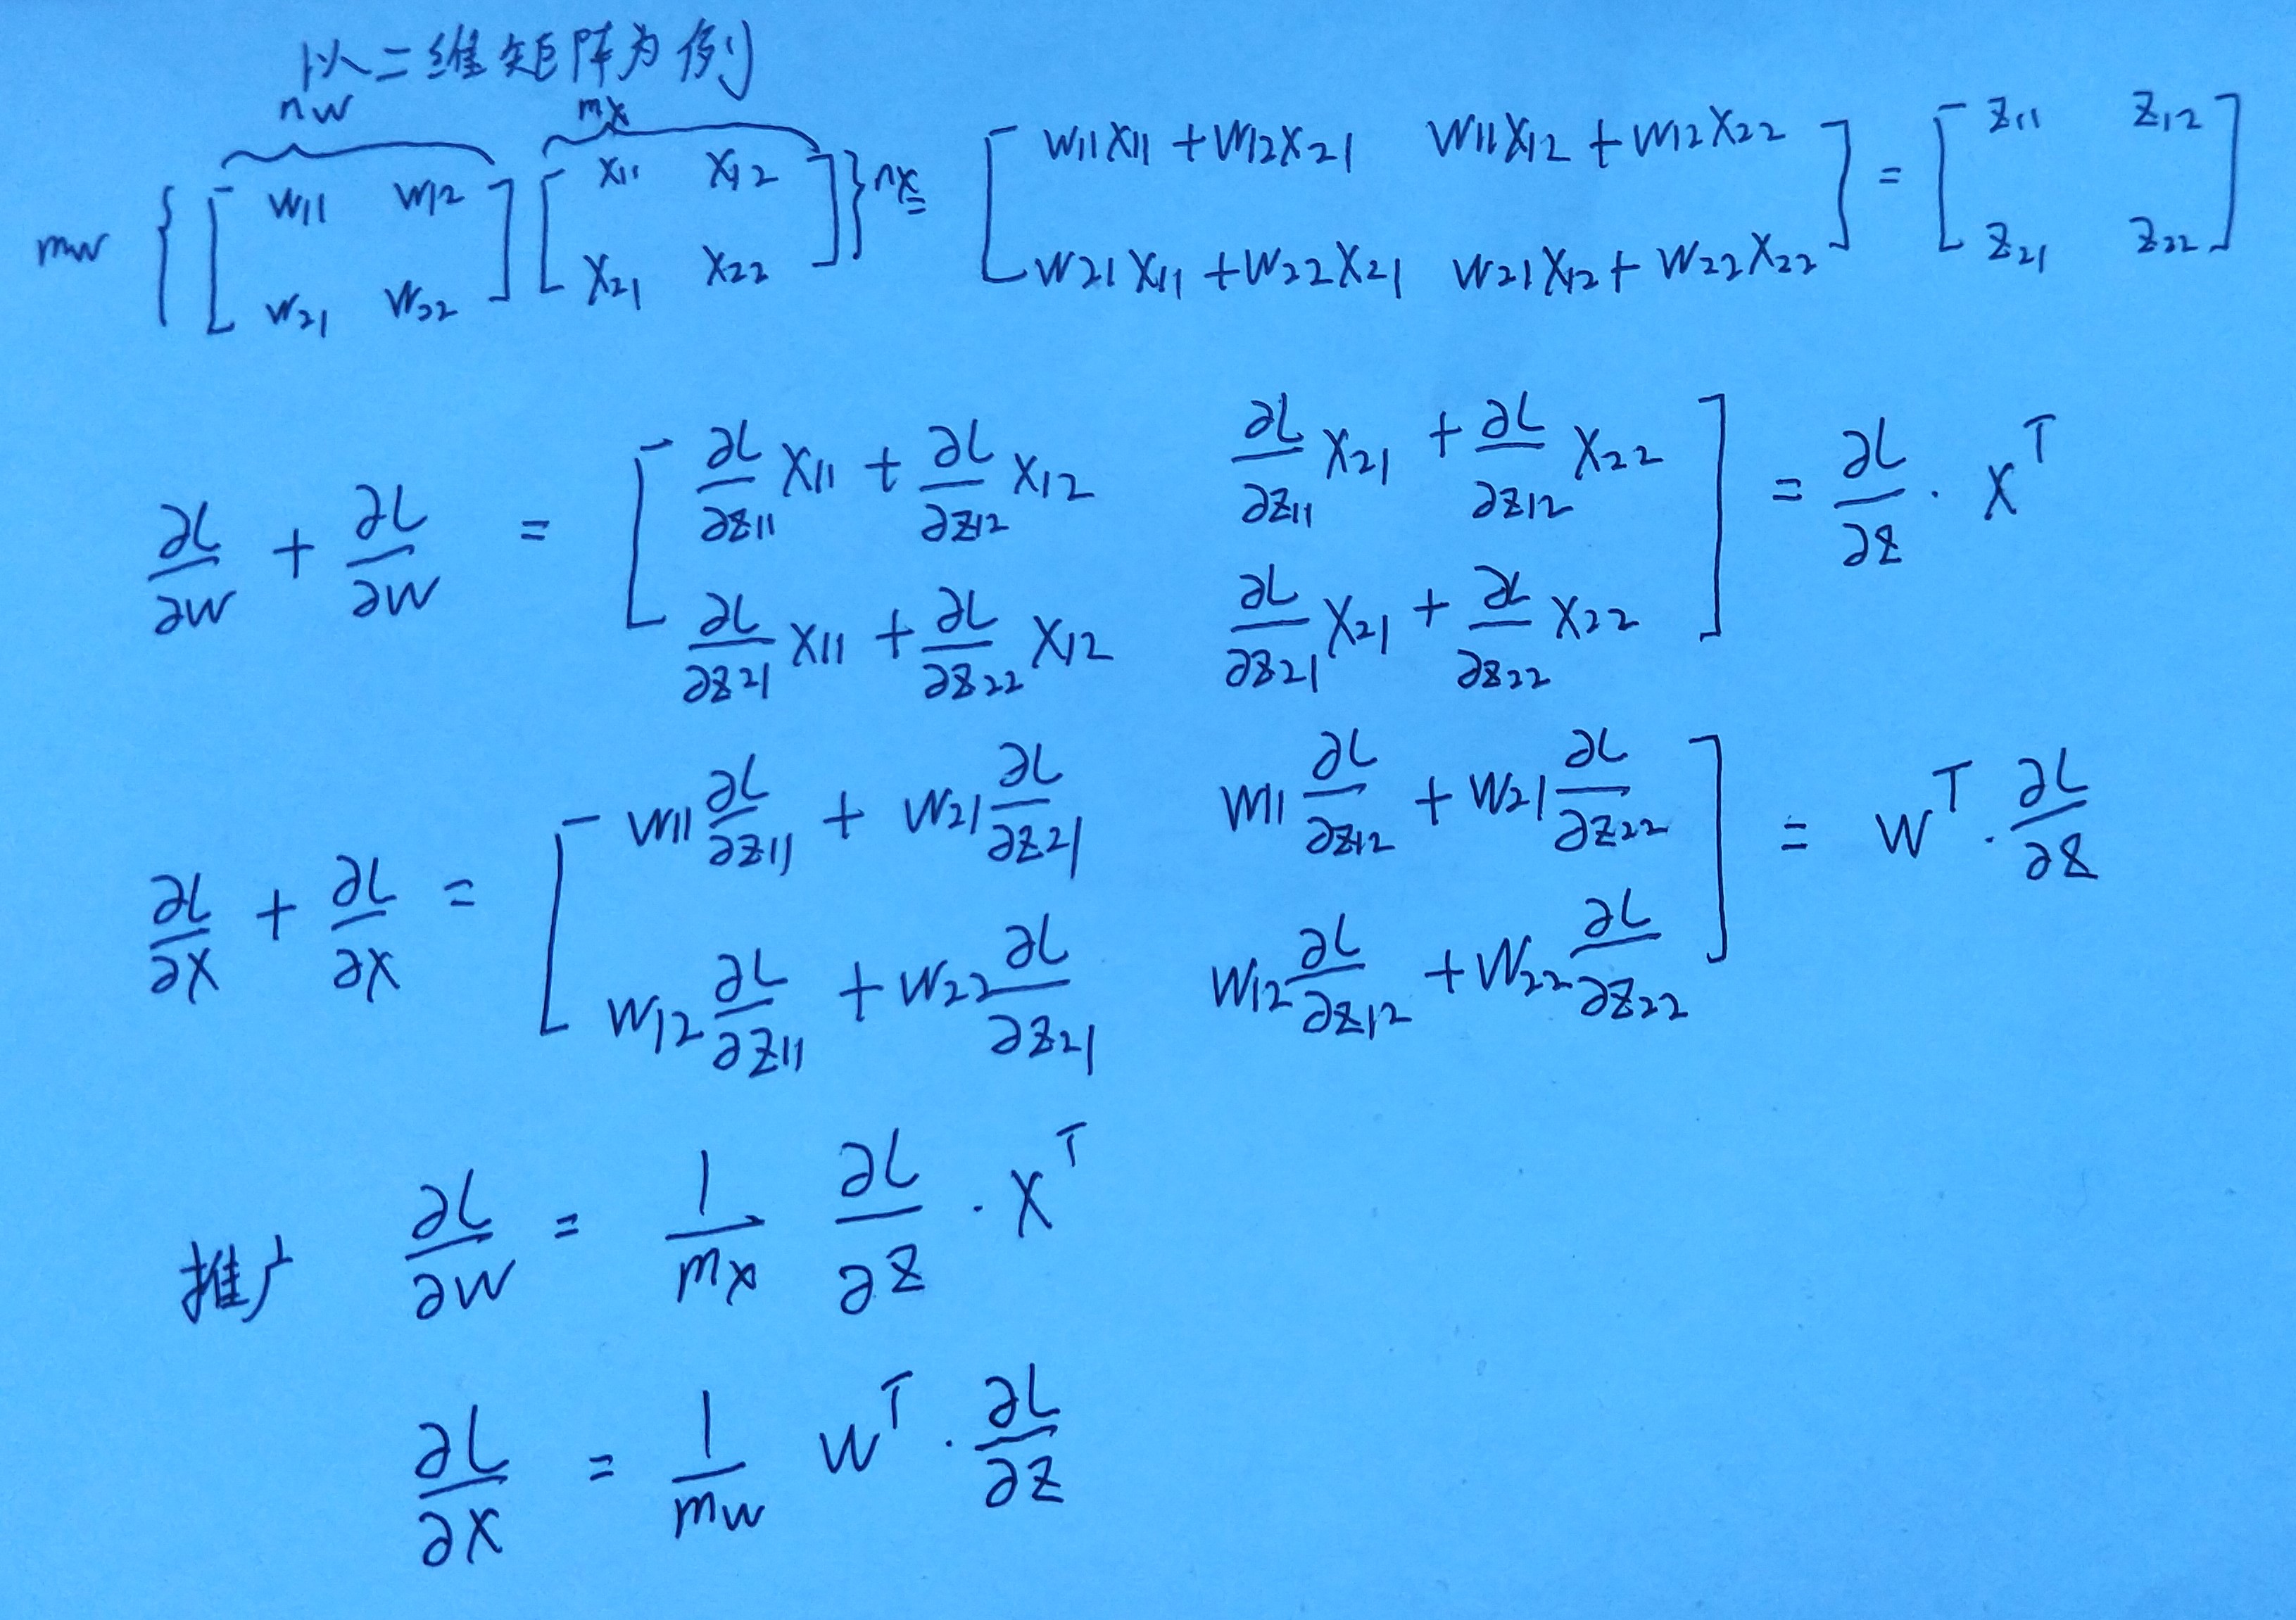 以二维矩阵为例
nw mx
mw { [ w11 w12 ] [ x11 x12 ] } nx = [ w11x11 + w12x21 w11x12 + w12x22 ] = [ z11 z12 ]
[ w21 w22 ] [ x21 x22 ] [ w21x11 + w22x21 w21x12 + w22x22 ] [ z21 z22 ]
∂L/∂w + ∂L/∂w = [ ∂L/∂z11 x11 + ∂L/∂z12 x12 ∂L/∂z11 x21 + ∂L/∂z12 x22 ] = ∂L/∂z · x^T
[ ∂L/∂z21 x11 + ∂L/∂z22 x12 ∂L/∂z21 x21 + ∂L/∂z22 x22 ]
∂L/∂x + ∂L/∂x = [ w11 ∂L/∂z11 + w21 ∂L/∂z21 w11 ∂L/∂z12 + w21 ∂L/∂z22 ] = w^T · ∂L/∂z
[ w12 ∂L/∂z11 + w22 ∂L/∂z21 w12 ∂L/∂z12 + w22 ∂L/∂z22 ]
推广 ∂L/∂w = 1/mx ∂L/∂z · x^T
∂L/∂x = 1/mw w^T · ∂L/∂z